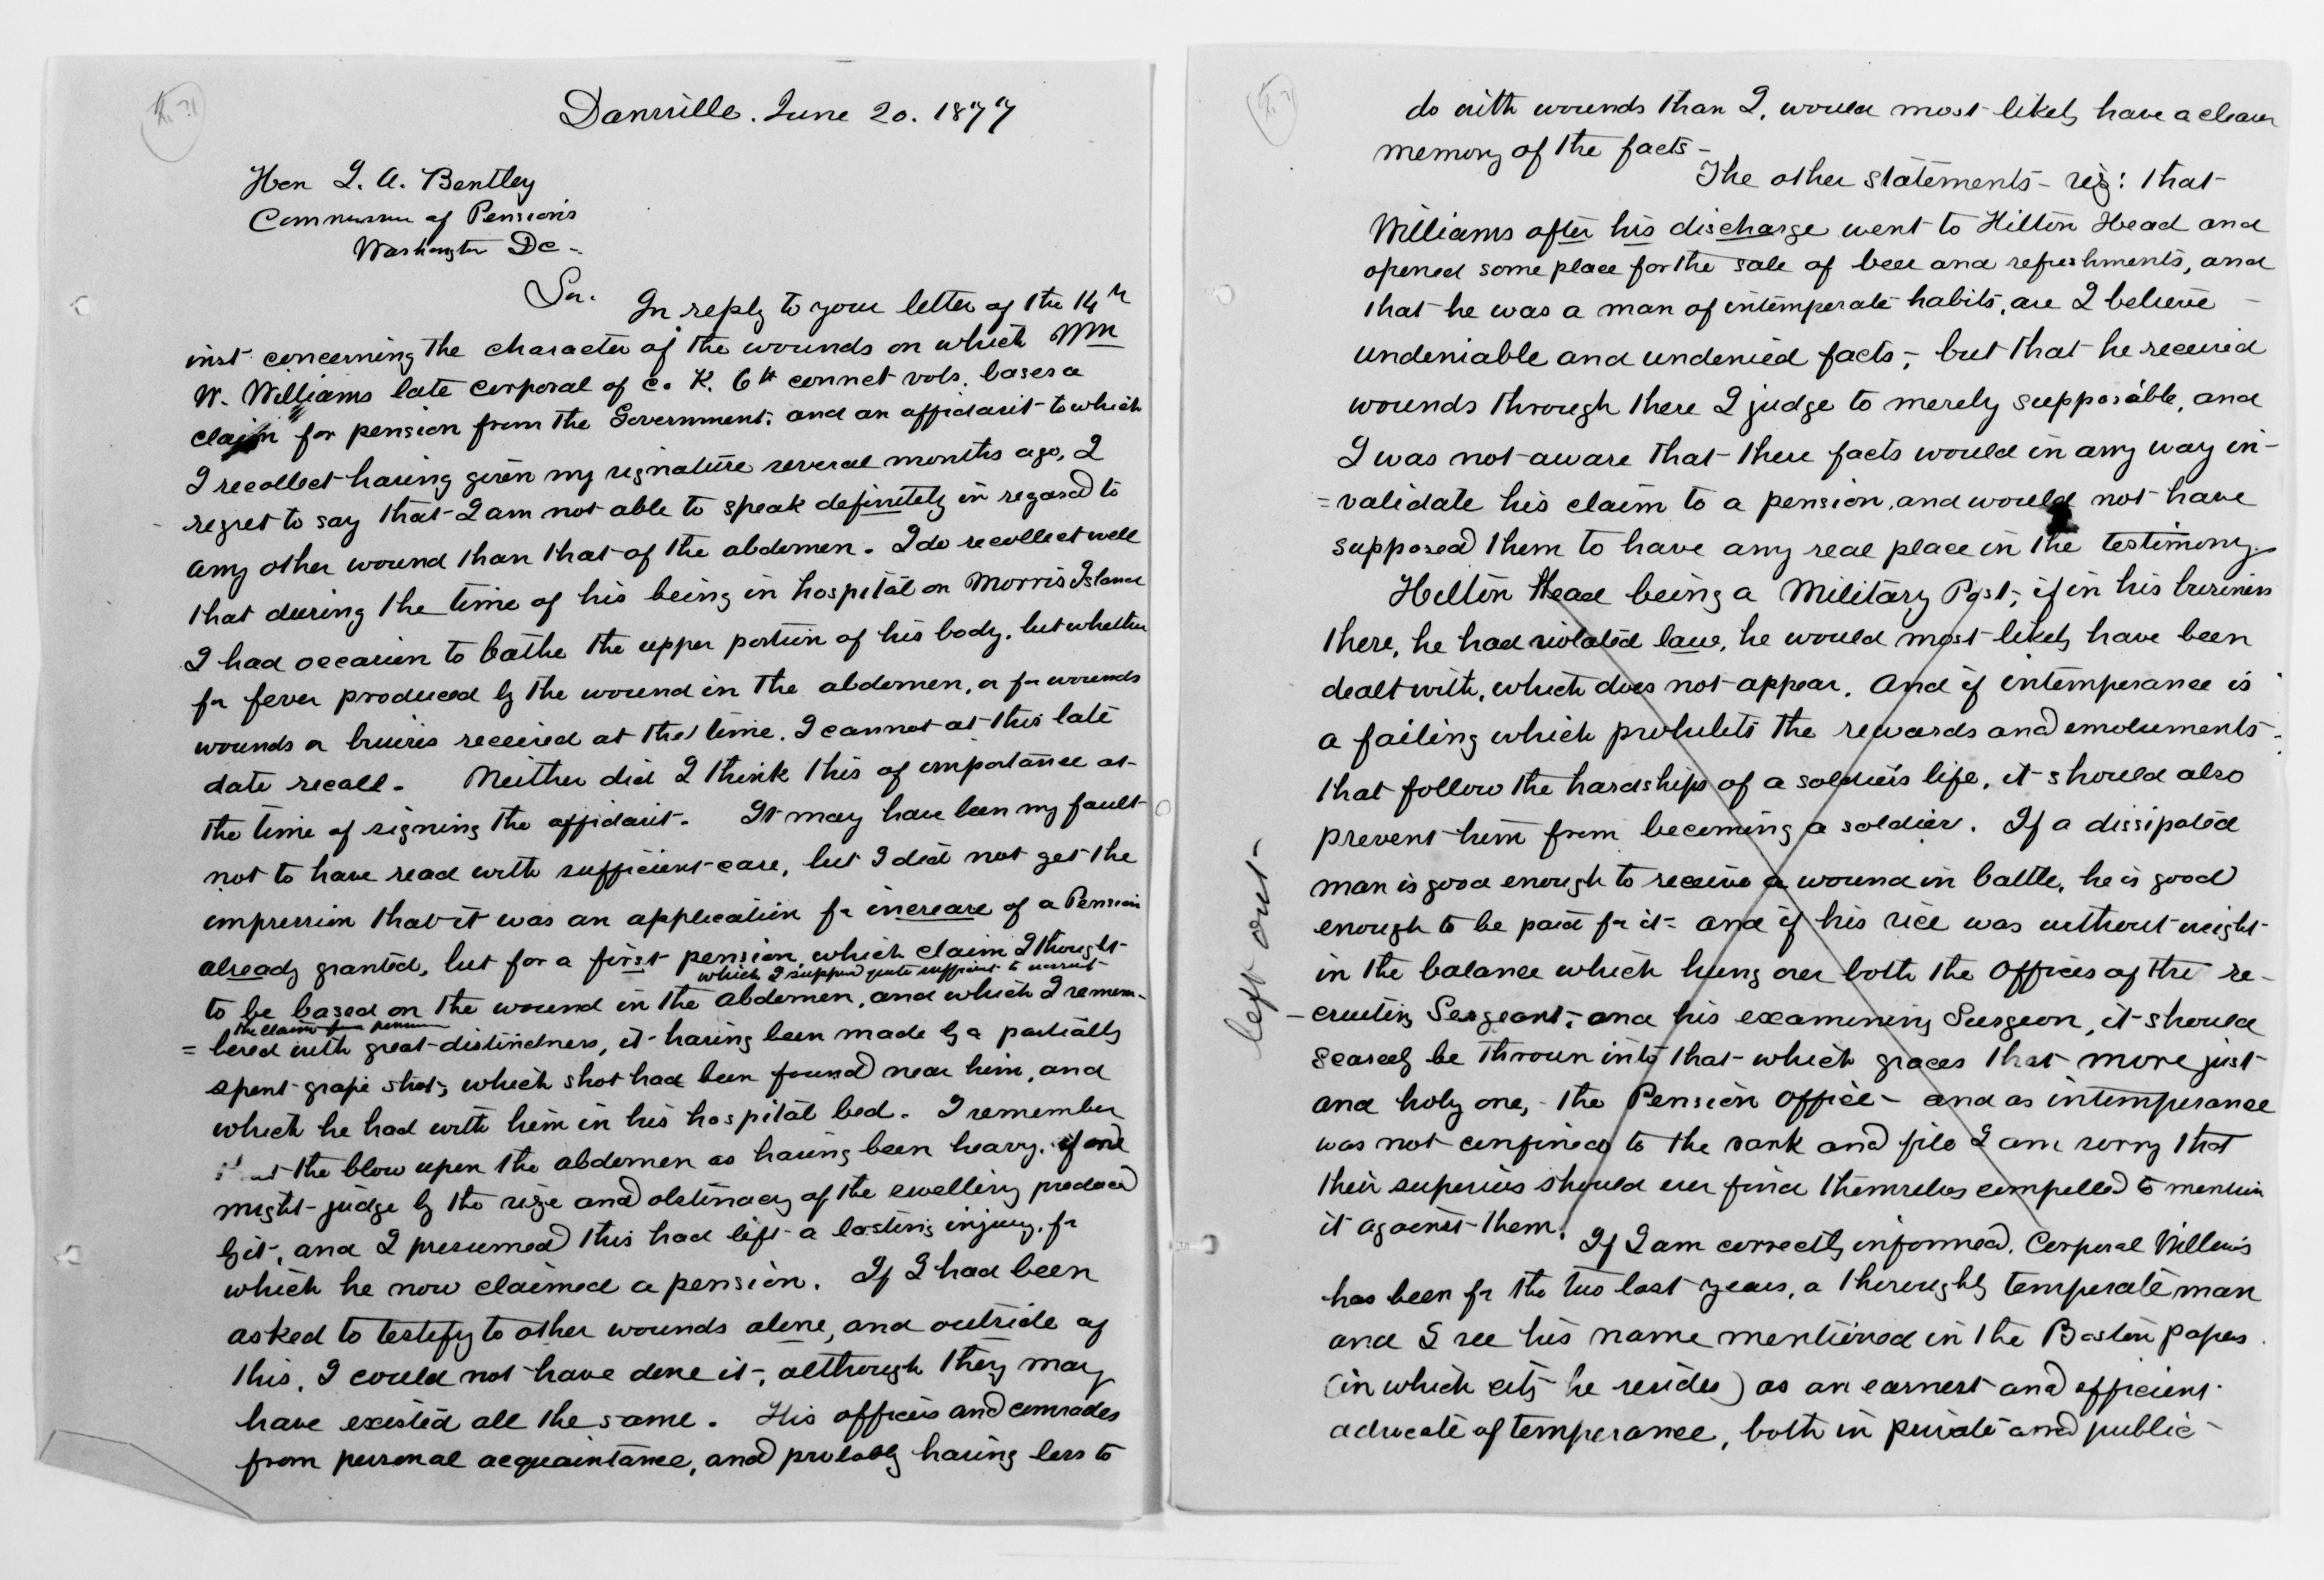 Danville. June 20. 1877
Hon J. A. Bentley
Commissioner of Pensions
Washington DC -
Sir. In reply to your letter of the 14th
inst concerning the character of the wounds on which Wm
W. Williams late corporal of Co. K. 6th connct vols. bases a
claim for pension from the Government; and an affidavit to which
I recollect having given my signature several months ago, I
regret to say that I am not able to speak definitely in regard to
any other wound than that of the abdomen. I do recollect well
that during the time of his being in hospital on Morris Island
I had occasion to bathe the upper portion of his body. but whether
for fever produced by the wound in the abdomen, or for wounds
wounds or bruises received at the time. I cannot at this late
date recall. Neither did I think this of importance at
the time of signing the affidavit. It may have been my fault
not to have read with sufficient care, but I did not get the
impression that it was an application for increase of a Pension
already granted, but for a first pension, which claim I thought
which I supposed quite sufficient to warrant
to be based on the wound in the abdomen, and which I remem-
the claim for a pension
= bered with great distinctness, it having been made by a partially
spent grape shot, which shot had been found near him, and
which he had with him in his hospital bed. I remember
the blow upon the abdomen as having been heavy. if one
might judge by the size and obstinacy of the swelling produced
by it, and I presumed this had left a lasting injury. for
which he now claimed a pension. If I had been
asked to testify to other wounds alone, and outside of
this, I could not have done it, although they may
have existed all the same. His officers and comrades
from personal acquaintance, and probably having less to
do with wounds than I, would most likely have a clearer
memory of the facts -
The other statements - viz: that
Williams after his discharge went to Hilton Head and
opened some place for the sale of beer and refreshments, and
that he was a man of intemperate habits, are I believe
undeniable and undenied facts, but that he received
wounds through there I judge to merely supposable, and
I was not aware that these facts would in any way in-
= validate his claim to a pension, and would not have
supposed them to have any real place in the testimony.
Hilton Head being a Military Post, if in his business
there, he had violated law, he would most likely have been
dealt with, which does not appear. And if intemperance is
a failing which prohibits the rewards and emoluments
that follow the hardships of a soldiers life, it should also
prevent him from becoming a soldier. If a dissipated
man is good enough to receive a wound in battle, he is good
enough to be paid for it - and if his vice was without weight
in the balance which hung over both the offices of the re-
- cruiting Sergeant, and his examining Surgeon, it should
scarcely be thrown into that which graces that more just
and holy one, - the Pension Office - and as intemperance
was not confined to the rank and file I am sorry that
their superiors should ever find themselves compelled to mention
it against them.
left out -
If I am correctly informed, Corporal Williams
has been for the two last years, a thoroughly temperate man
and I see his name mentioned in the Boston papers
(in which city he resides) as an earnest and efficient
advocate of temperance, both in private and public -